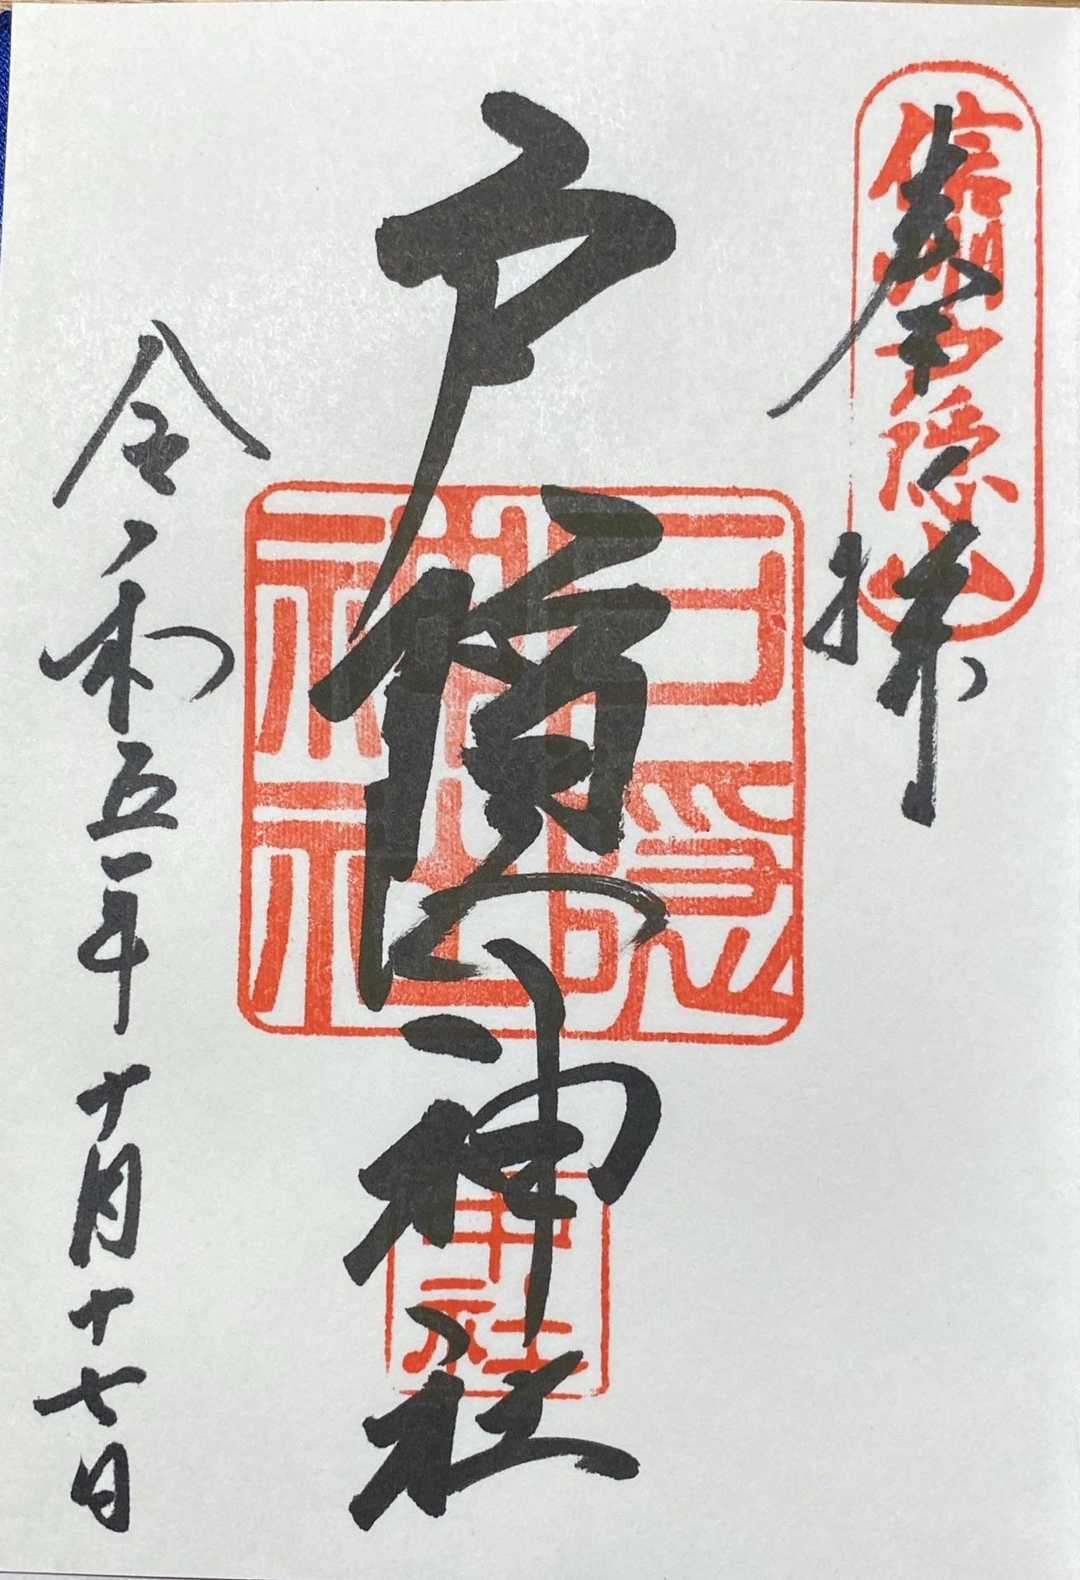 奉拝
信州戸隠山
戸隠神社
戸隠
神社
中社
令和五年十月十七日